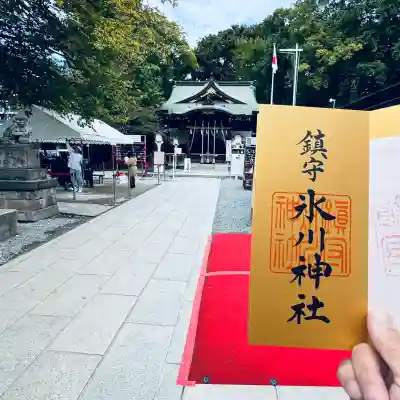 鎮守
氷川神社